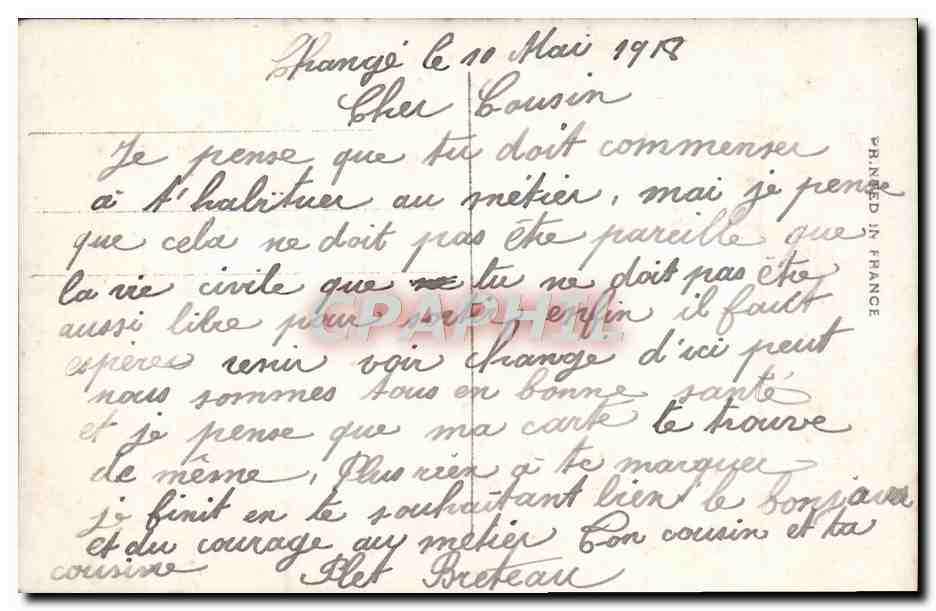 Changé le 10 Mai 1918
Cher Cousin
Je pense que tu doit commenser
à t'habituer au métier, mai je pense
que cela ne doit pas être pareille que
la vie civile que tu ne doit pas être
aussi libre pour sortir, enfin il fault
espères venir voir change d'ici peut
nous sommes tous en bonne santé
et je pense que ma carte te trouve
de même, Plus rien à te marquer
je finit en te souhaitant bien le bonjour
et du courage au métier Ton cousin et ta
cousine Plet Breteau
PRINTED IN FRANCE
CPAPHIL